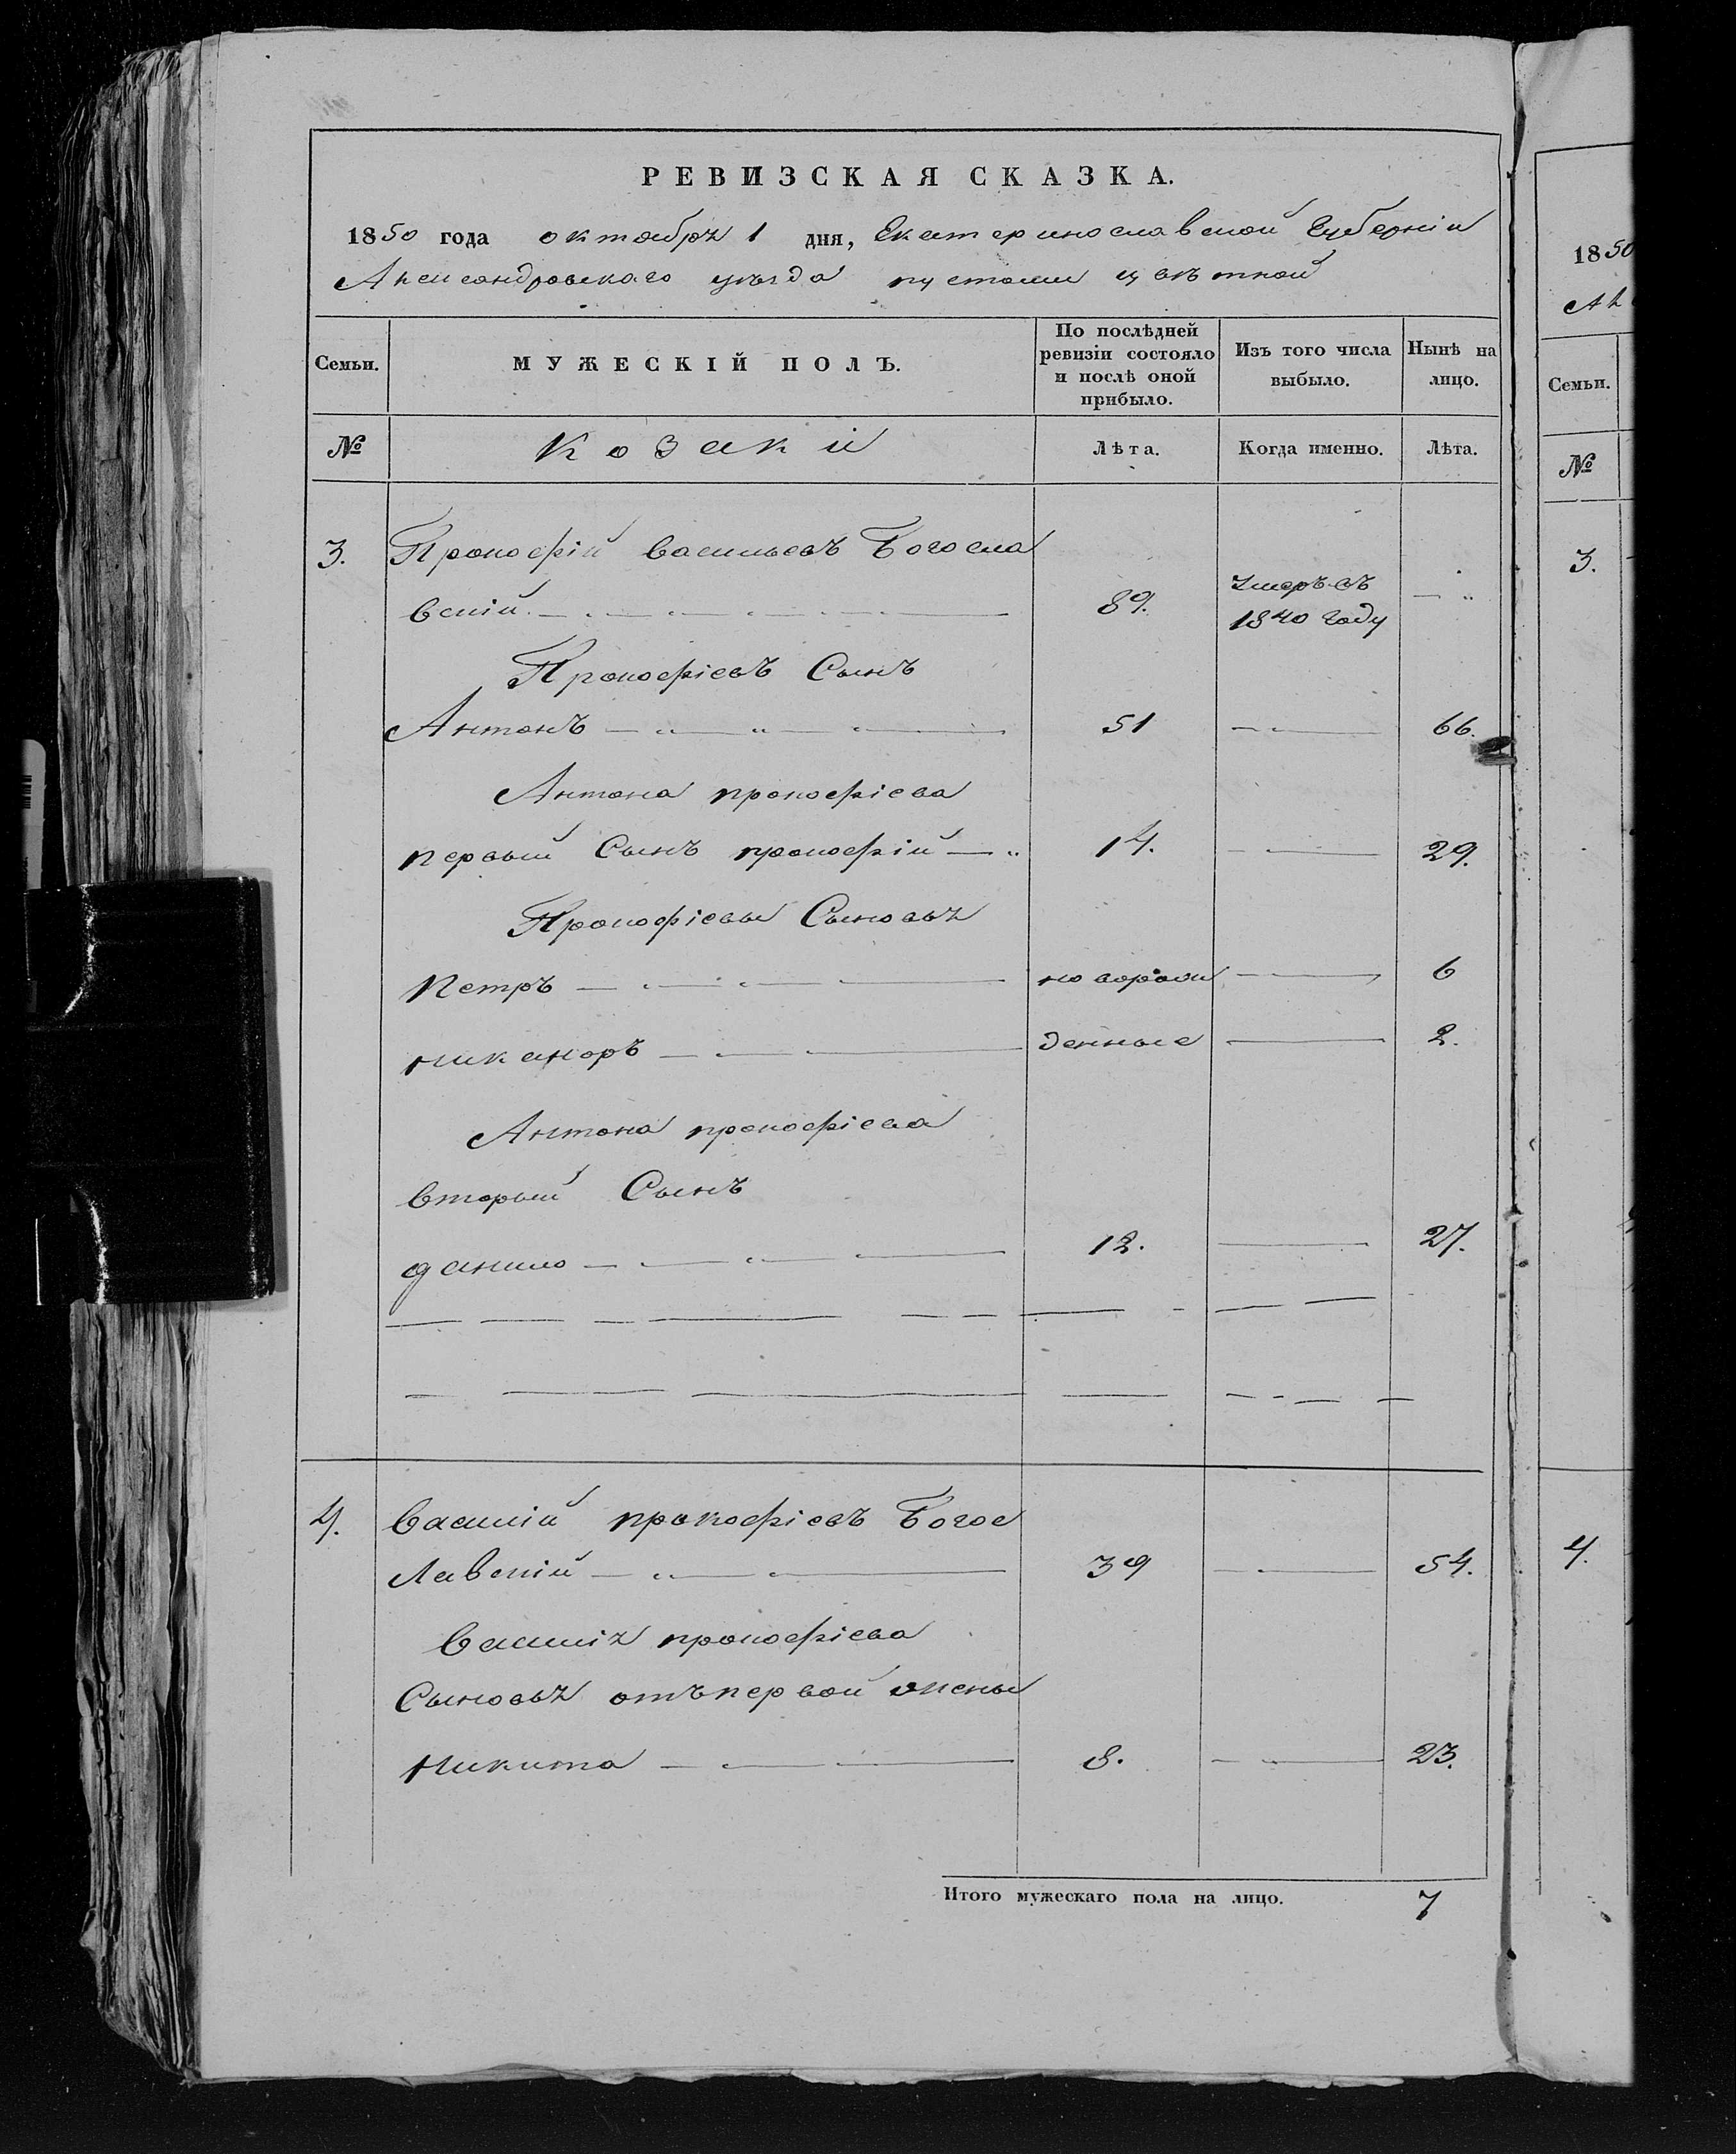 РЕВИЗСКАЯ СКАЗКА.
1850 года октября 1 дня, Екатеринославской Губерніи
Александровскаго уѣзда пустоши цвѣтной
Семьи. МУЖЕСКІЙ ПОЛЪ. По послѣдней ревизіи состояло и послѣ оной прибыло. Изъ того числа выбыло. Нынѣ на лицо.
№ Козаки Лѣта. Когда именно. Лѣта.
3. Прокофій васильевъ Богосла
вскій. 89. Умеръ въ 1840 году
Прокофіевъ Сынъ
Антонъ 51 66.
Антона прокофіева
первый Сынъ прокофій 14. 29.
Прокофіевы Сыновья
Петръ новорож 6
никаноръ денные 2.
Антона прокофіева
вторый Сынъ
данило 12. 27.
4. Василій прокофіевъ Богос
лавскій 39 54.
Василія прокофіева
Сыновья отъ первой жены
Никита 8. 23.
Итого мужескаго пола на лицо. 7
1850
Ал
Семьи.
№
3.
4.